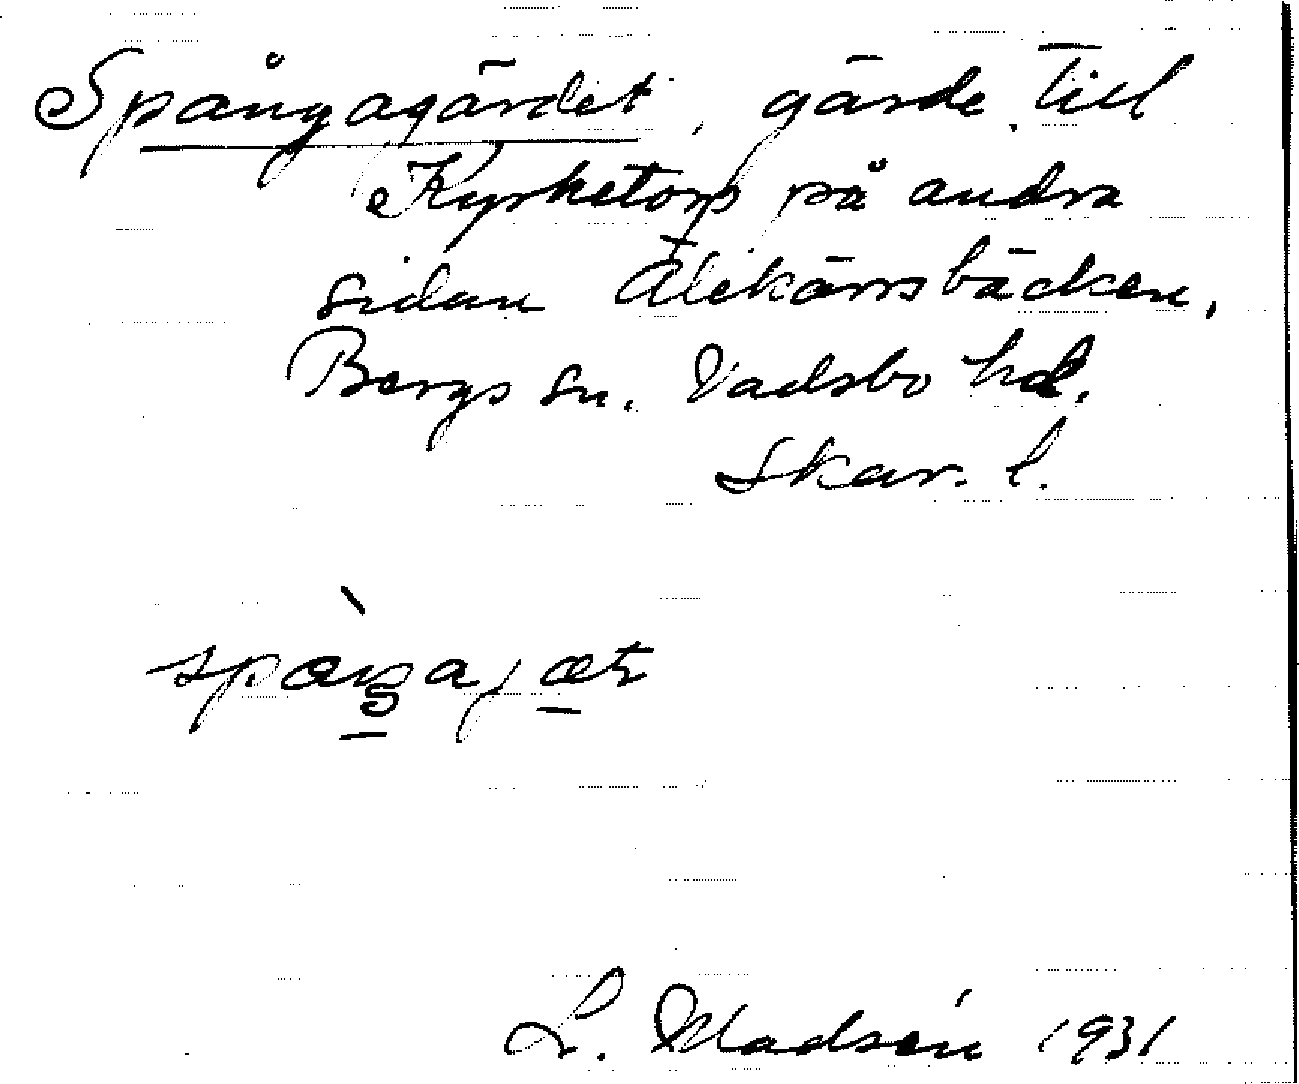 Spångagärdet, gärde till
Kyrketorp på andra
sidan Älekärrsbäcken,
Bergs sn. Vadsbo hd.
Skar. l.
L. Madsén 1931